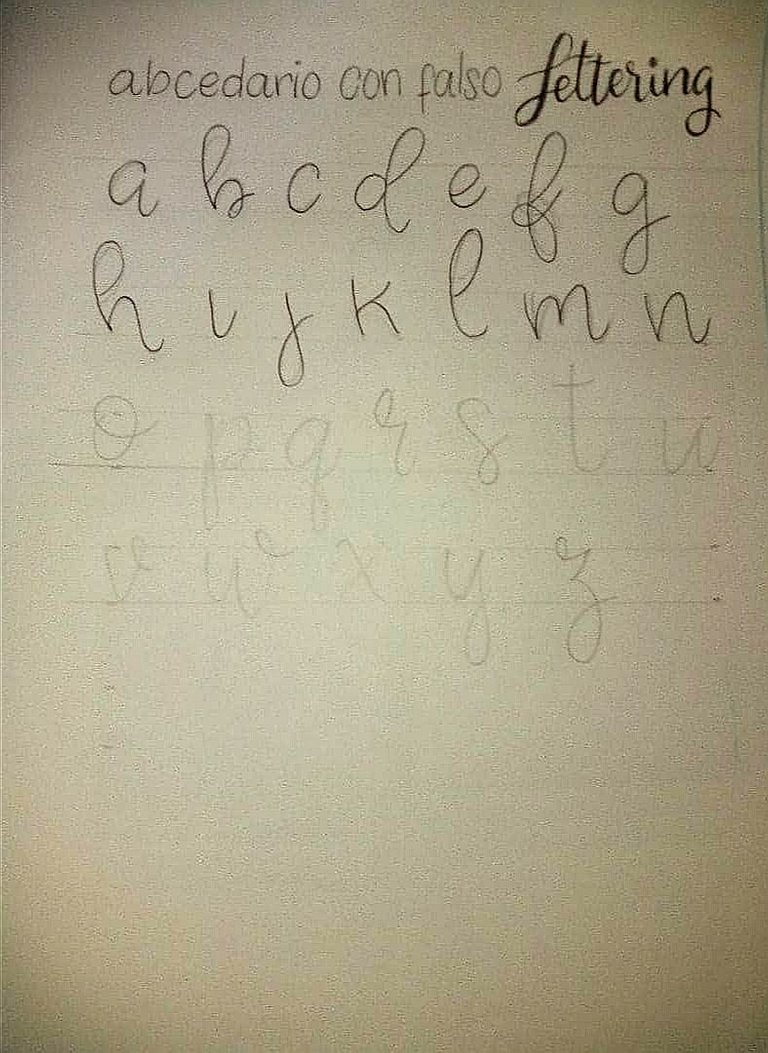 abcedario con falso lettering
a b c d e f g
h i j k l m n
o p q r s t u
v w x y z